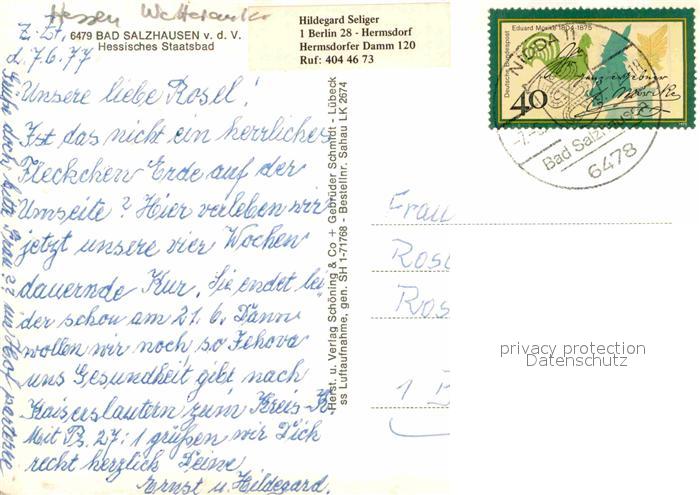 Hessen Wetterau
Z. Zt.
6479 BAD SALZHAUSEN v. d. V.
Hessisches Staatsbad
d. 7.6.77
Hildegard Seliger
1 Berlin 28 - Hermsdorf
Hermsdorfer Damm 120
Ruf: 404 46 73
Unsere liebe Rosel!
Ist das nicht ein herrliches
Fleckchen Erde auf der
Umseite? Hier verleben wir
jetzt unsere vier Wochen
dauernde Kur. Sie endet lei-
der schon am 21.6. Dann
wollen wir noch so Jehova
uns Gesundheit gibt nach
Kaiserslautern zum Kreis-K
Mit Ps. 27:1 grüßen wir Dich
recht herzlich Deine
Ernst u. Hildegard.
Herst. u. Verlag Schöning & Co + Gebrüder Schmidt - Lübeck
ss Luftaufnahme, gen. SH 1-71768 - Bestellnr. Sahau LK 2674
Deutsche Bundespost
Eduard Mörike 1804-1875
40
NIDDA 11
Bad Salzhausen
6478
Frau
Ros
1 B
privacy protection
Datenschutz